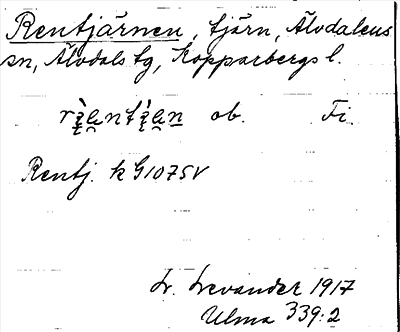 Rentjärnen, tjärn, Älvdalens
sn, Älvdals tg, Kopparbergs l.
ob. Fi.
Rentj. k G107SV
L. Levander 1917
Ulma 339:2